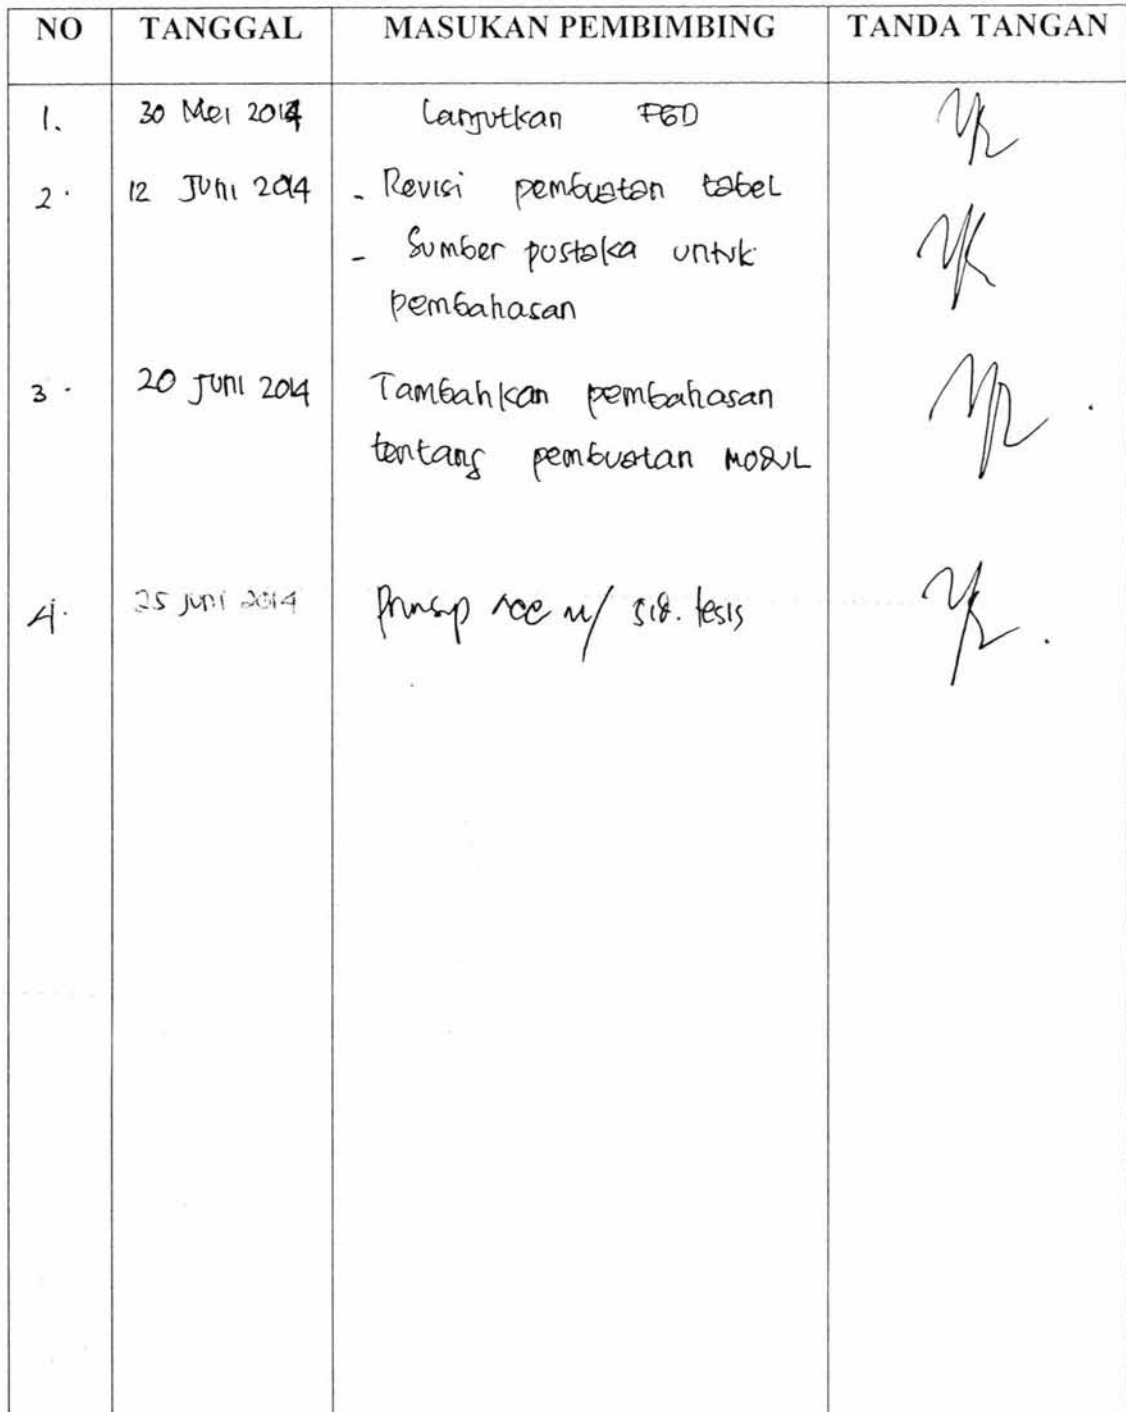 NO TANGGAL MASUKAN PEMBIMBING TANDA TANGAN
1. 30 Mei 2014 Lanjutkan FGD
2. 12 Juni 2014 - Revisi pembuatan tabel
- Sumber pustaka untuk
pembahasan
3. 20 Juni 2014 Tambahkan pembahasan
tentang pembuatan MODUL
4. 25 Juni 2014 Prinsip acc u/ sid. tesis